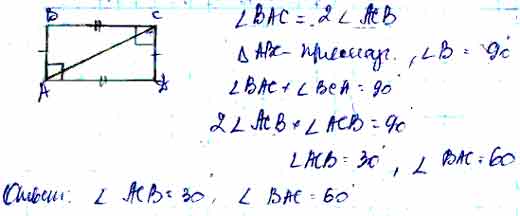 B C
A D
∠BAC = 2∠ACB
△ABC - прямоуг., ∠B = 90°
∠BAC + ∠BCA = 90°
2∠ACB + ∠ACB = 90°
∠ACB = 30°, ∠BAC = 60
Ответ: ∠ACB = 30°, ∠BAC = 60°